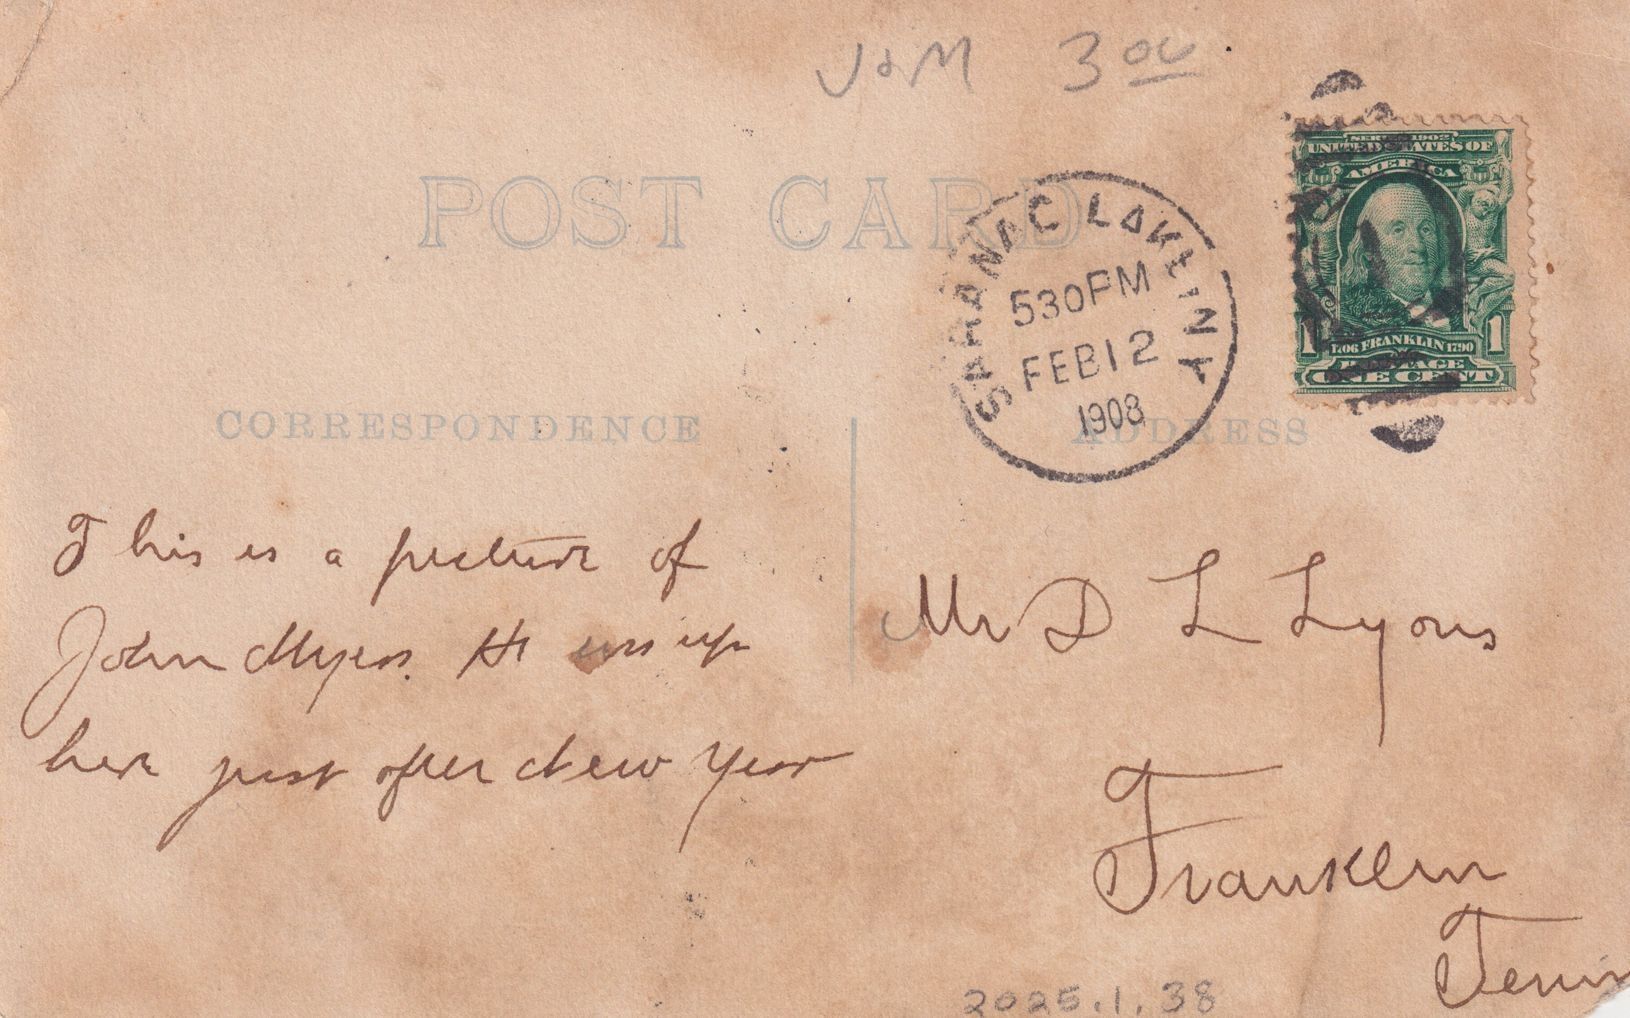 J&M 3 00
SERIES 1902
UNITED STATES OF
AMERICA
POST CARD
SARANAC LAKE N Y
530 PM
FEB 12
1908
1 1706 FRANKLIN 1790 1
POSTAGE
ONE CENT
CORRESPONDENCE
ADDRESS
This is a picture of
John Myers. He was up
here just after New Year
Mr D L Lyons
Franklin
Tenn
2025.1.38